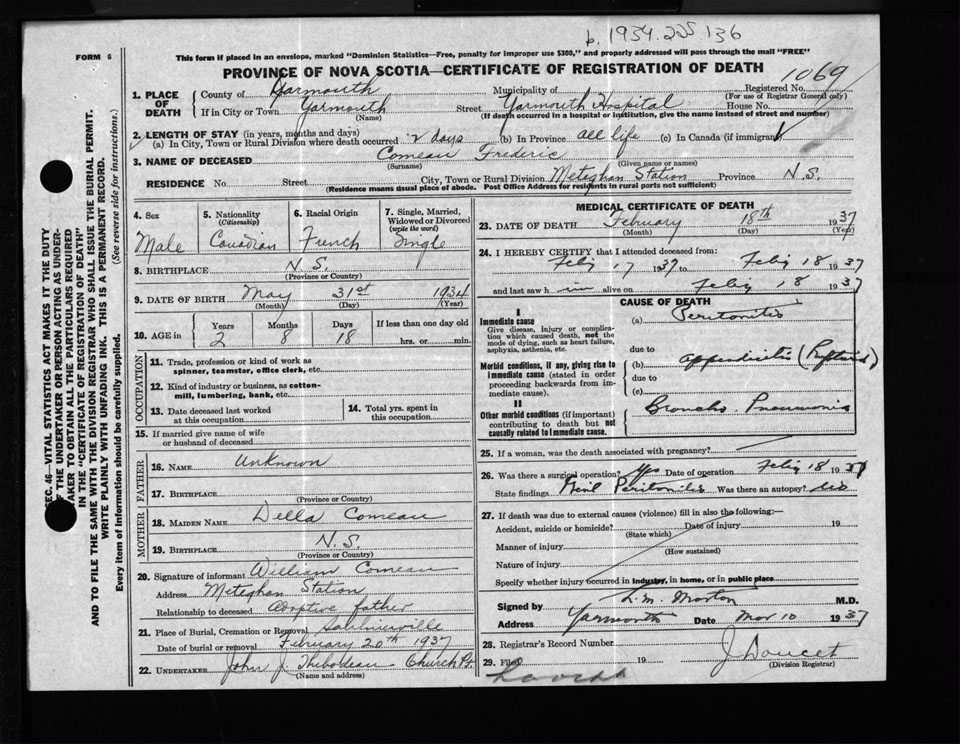 b. 1934.205 136
FORM 6
This form if placed in an envelope, marked "Dominion Statistics—Free, penalty for improper use $300," and properly addressed will pass through the mail "FREE"
PROVINCE OF NOVA SCOTIA—CERTIFICATE OF REGISTRATION OF DEATH
SEC. 46—VITAL STATISTICS ACT MAKES IT THE DUTY
OF THE UNDERTAKER OR PERSON ACTING AS UNDER-
TAKER TO OBTAIN ALL THE PARTICULARS REQUIRED
IN THE "CERTIFICATE OF REGISTRATION OF DEATH"
AND TO FILE THE SAME WITH THE DIVISION REGISTRAR WHO SHALL ISSUE THE BURIAL PERMIT.
WRITE PLAINLY WITH UNFADING INK. THIS IS A PERMANENT RECORD.
Every item of information should be carefully supplied. (See reverse side for instructions.)
1. PLACE OF DEATH
County of Yarmouth Municipality of Registered No. 1069
(For use of Registrar General only)
If in City or Town Yarmouth Street Yarmouth Hospital House No.
(Name) (If death occurred in a hospital or institution, give the name instead of street and number)
2. LENGTH OF STAY (in years, months and days)
(a) In City, Town or Rural Division where death occurred 2 days (b) In Province all life (c) In Canada (if immigrant)
3. NAME OF DECEASED Comeau Frederic
(Surname) (Given name or names)
RESIDENCE No. Street City, Town or Rural Division Meteghan Station Province N.S.
(Residence means usual place of abode. Post Office Address for residents in rural parts not sufficient)
4. Sex Male
5. Nationality (Citizenship) Canadian
6. Racial Origin French
7. Single, Married, Widowed or Divorced (write the word) Single
8. BIRTHPLACE N.S.
(Province or Country)
9. DATE OF BIRTH May 31st 1934
(Month) (Day) (Year)
10. AGE in Years Months Days If less than one day old
2 8 18 hrs. or min.
OCCUPATION
11. Trade, profession or kind of work as
spinner, teamster, office clerk, etc.
12. Kind of industry or business, as cotton-
mill, lumbering, bank, etc.
13. Date deceased last worked
at this occupation
14. Total yrs. spent in
this occupation
15. If married give name of wife
or husband of deceased
FATHER
16. NAME Unknown
17. BIRTHPLACE
(Province or Country)
MOTHER
18. MAIDEN NAME Della Comeau
19. BIRTHPLACE N.S.
(Province or Country)
20. Signature of informant William Comeau
Address Meteghan Station
Relationship to deceased adoptive father
21. Place of Burial, Cremation or Removal Saulnierville
Date of burial or removal February 20th 1937
22. UNDERTAKER John J. Thibodeau Church Pt.
(Name and address)
MEDICAL CERTIFICATE OF DEATH
23. DATE OF DEATH February 18th 1937
(Month) (Day) (Year)
24. I HEREBY CERTIFY that I attended deceased from:
Feby 17 1937 to Feby 18 1937
and last saw h im alive on Feby 18 1937
CAUSE OF DEATH
I
Immediate cause
Give disease, injury or complica-
tion which caused death, not the
mode of dying, such as heart failure,
asphyxia, asthenia, etc.
(a) Peritonitis
due to
Morbid conditions, if any, giving rise to
immediate cause (stated in order
proceeding backwards from im-
mediate cause).
(b) appendicitis (Ruptured)
due to
(c)
II
Other morbid conditions (if important)
contributing to death but not
causally related to immediate cause.
Broncho Pneumonia
25. If a woman, was the death associated with pregnancy?
26. Was there a surgical operation? Yes Date of operation Feby 18 1937
State findings Peritonitis Was there an autopsy? No
27. If death was due to external causes (violence) fill in also the following:—
Accident, suicide or homicide? Date of injury 19
(State which)
Manner of injury
(How sustained)
Nature of injury
Specify whether injury occurred in industry, in home, or in public place
Signed by L. M. Morton M.D.
Address Yarmouth Date Mar 10 1937
28. Registrar's Record Number
29. Filed 19 J Doucet
(Division Registrar)